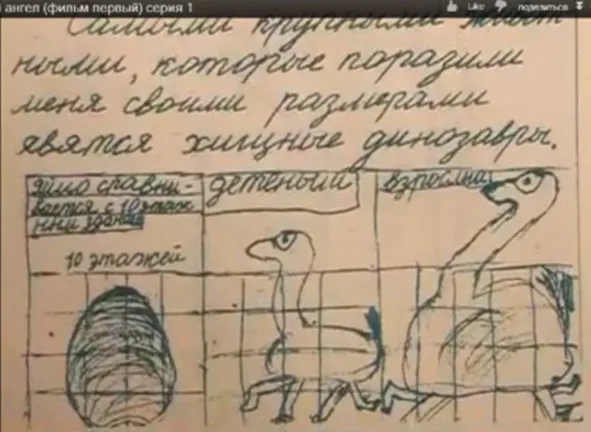 ангел (фильм первый) серия 1
Like
поделиться
Самыми крупными живот
ными, которые поразили
меня своими размерами
явятся хищные динозавры.
яйцо сравни-
вается с 10 этаж
ным здание
10 этажей
детеныш
взрослый